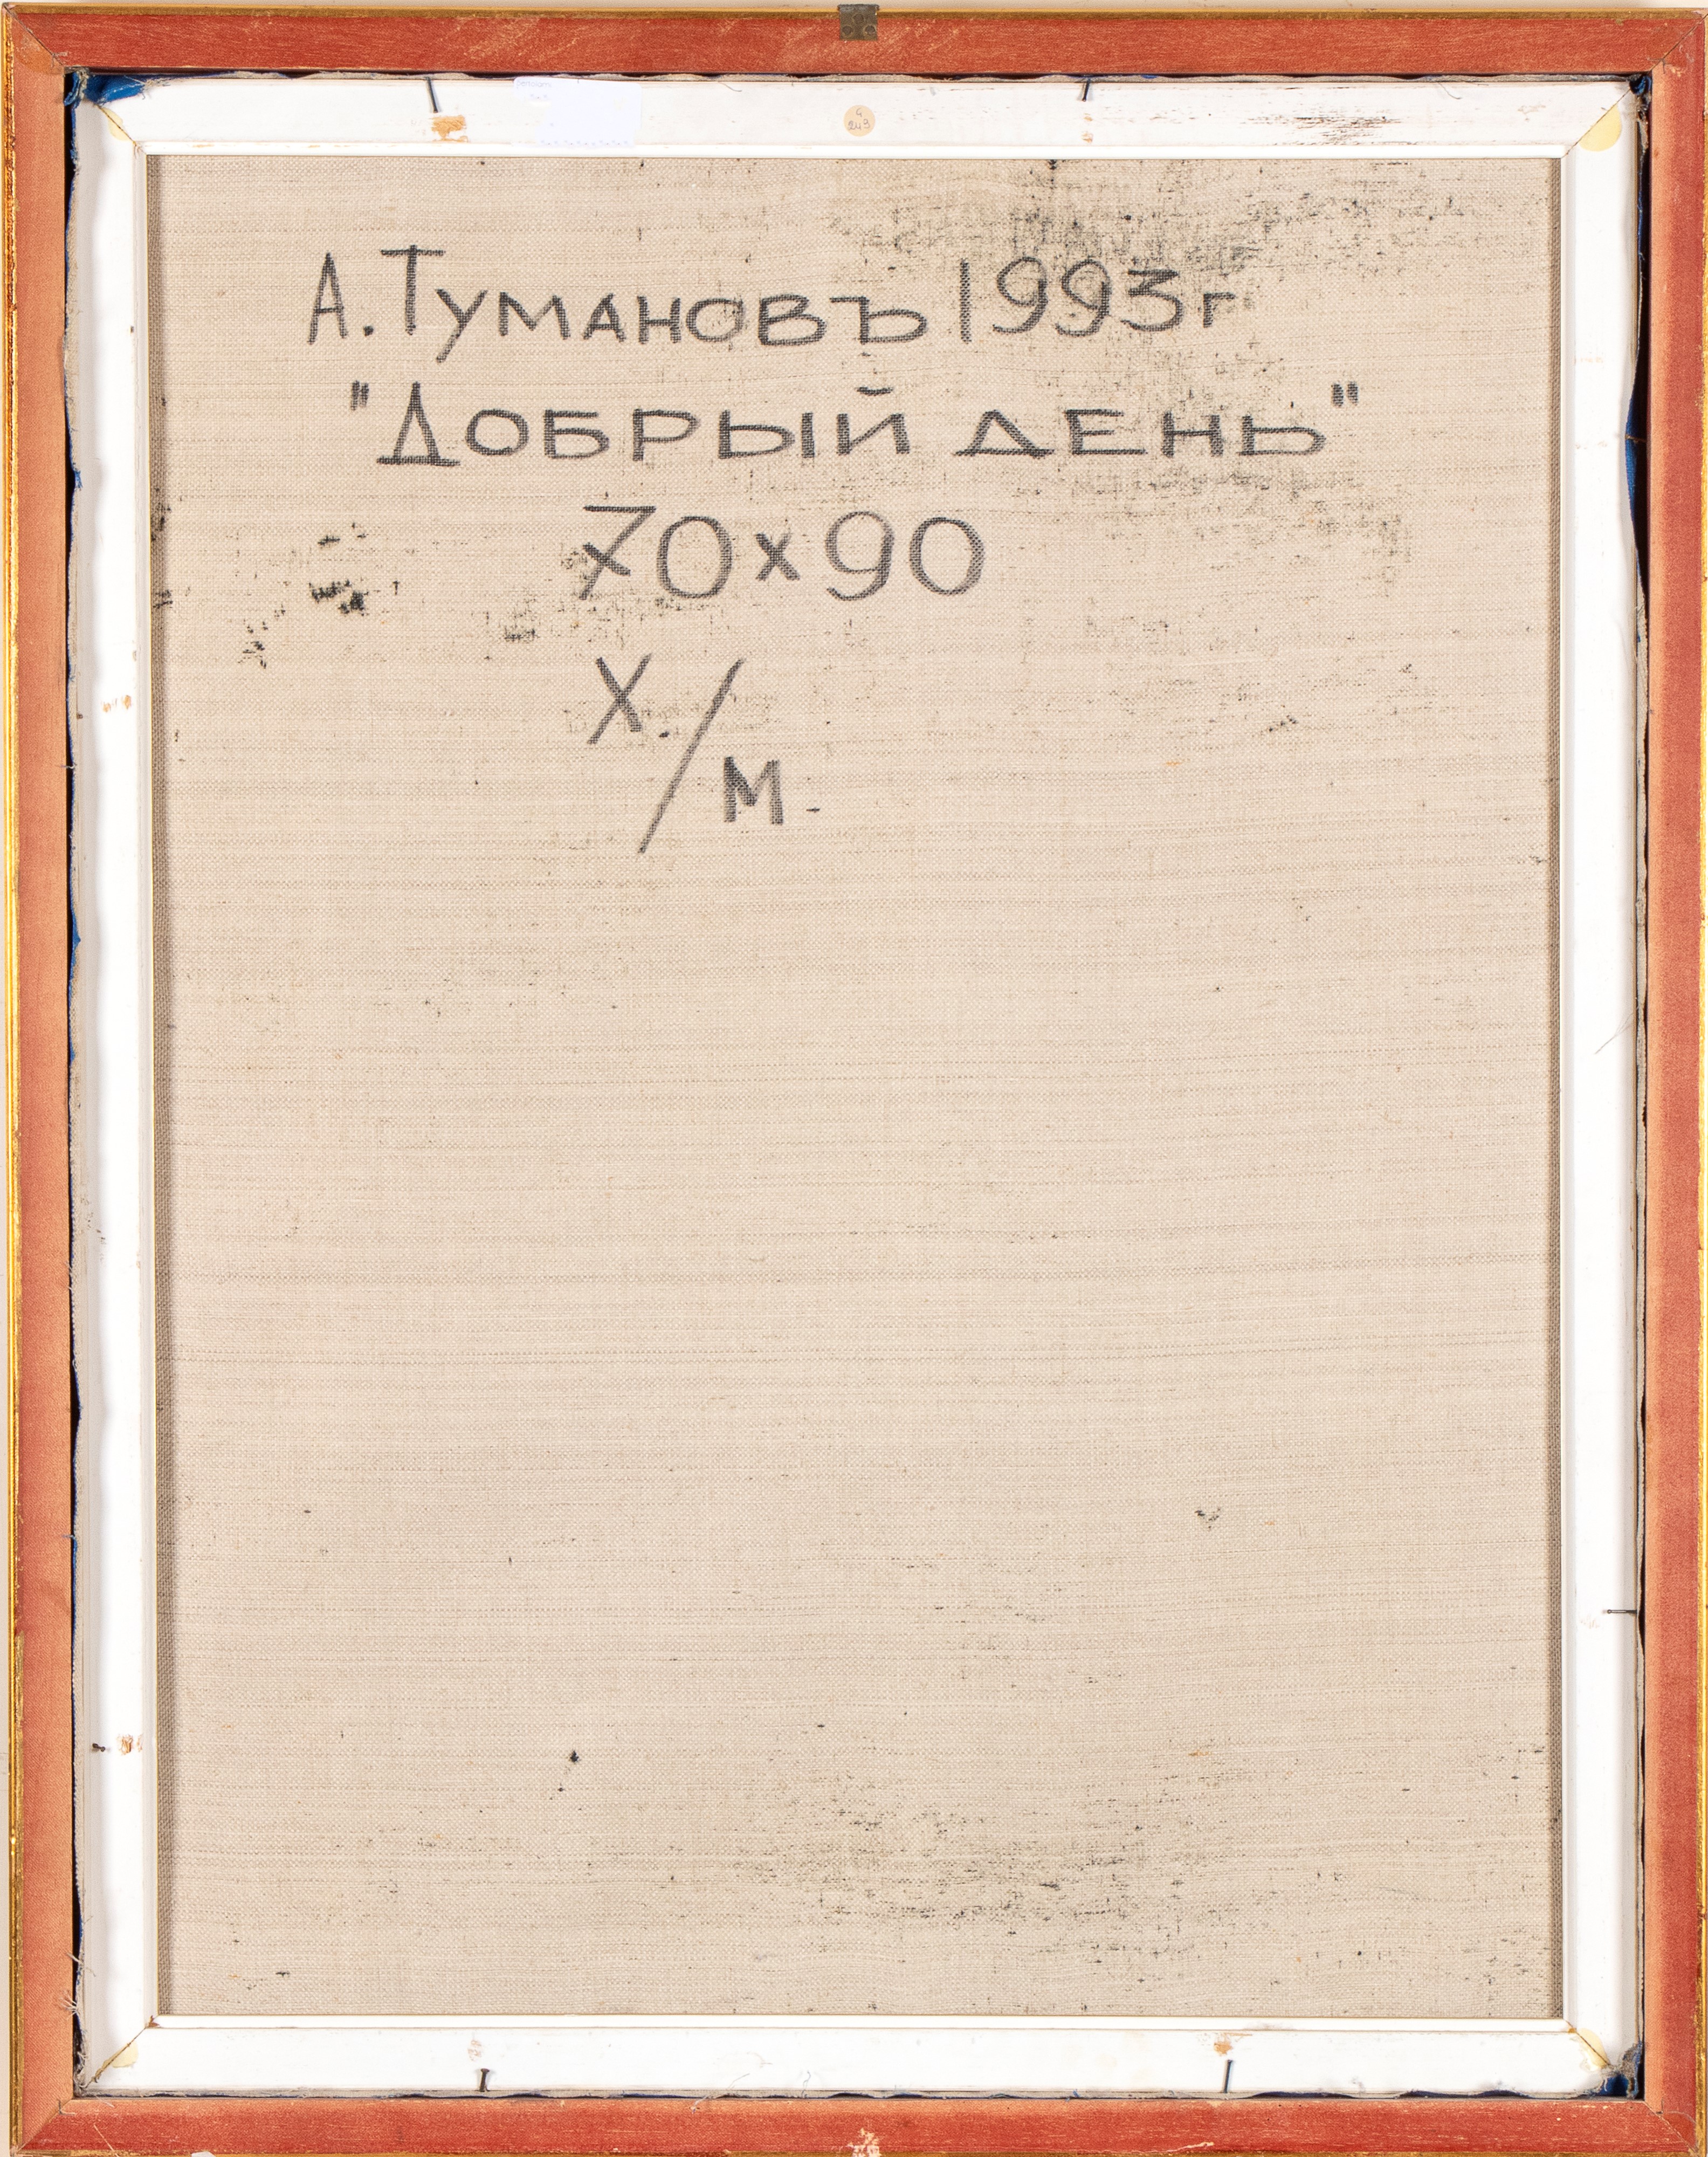 А. ТУМАНОВЪ 1993 г
"ДОБРЫЙ ДЕНЬ"
70 х 90
Х./М.